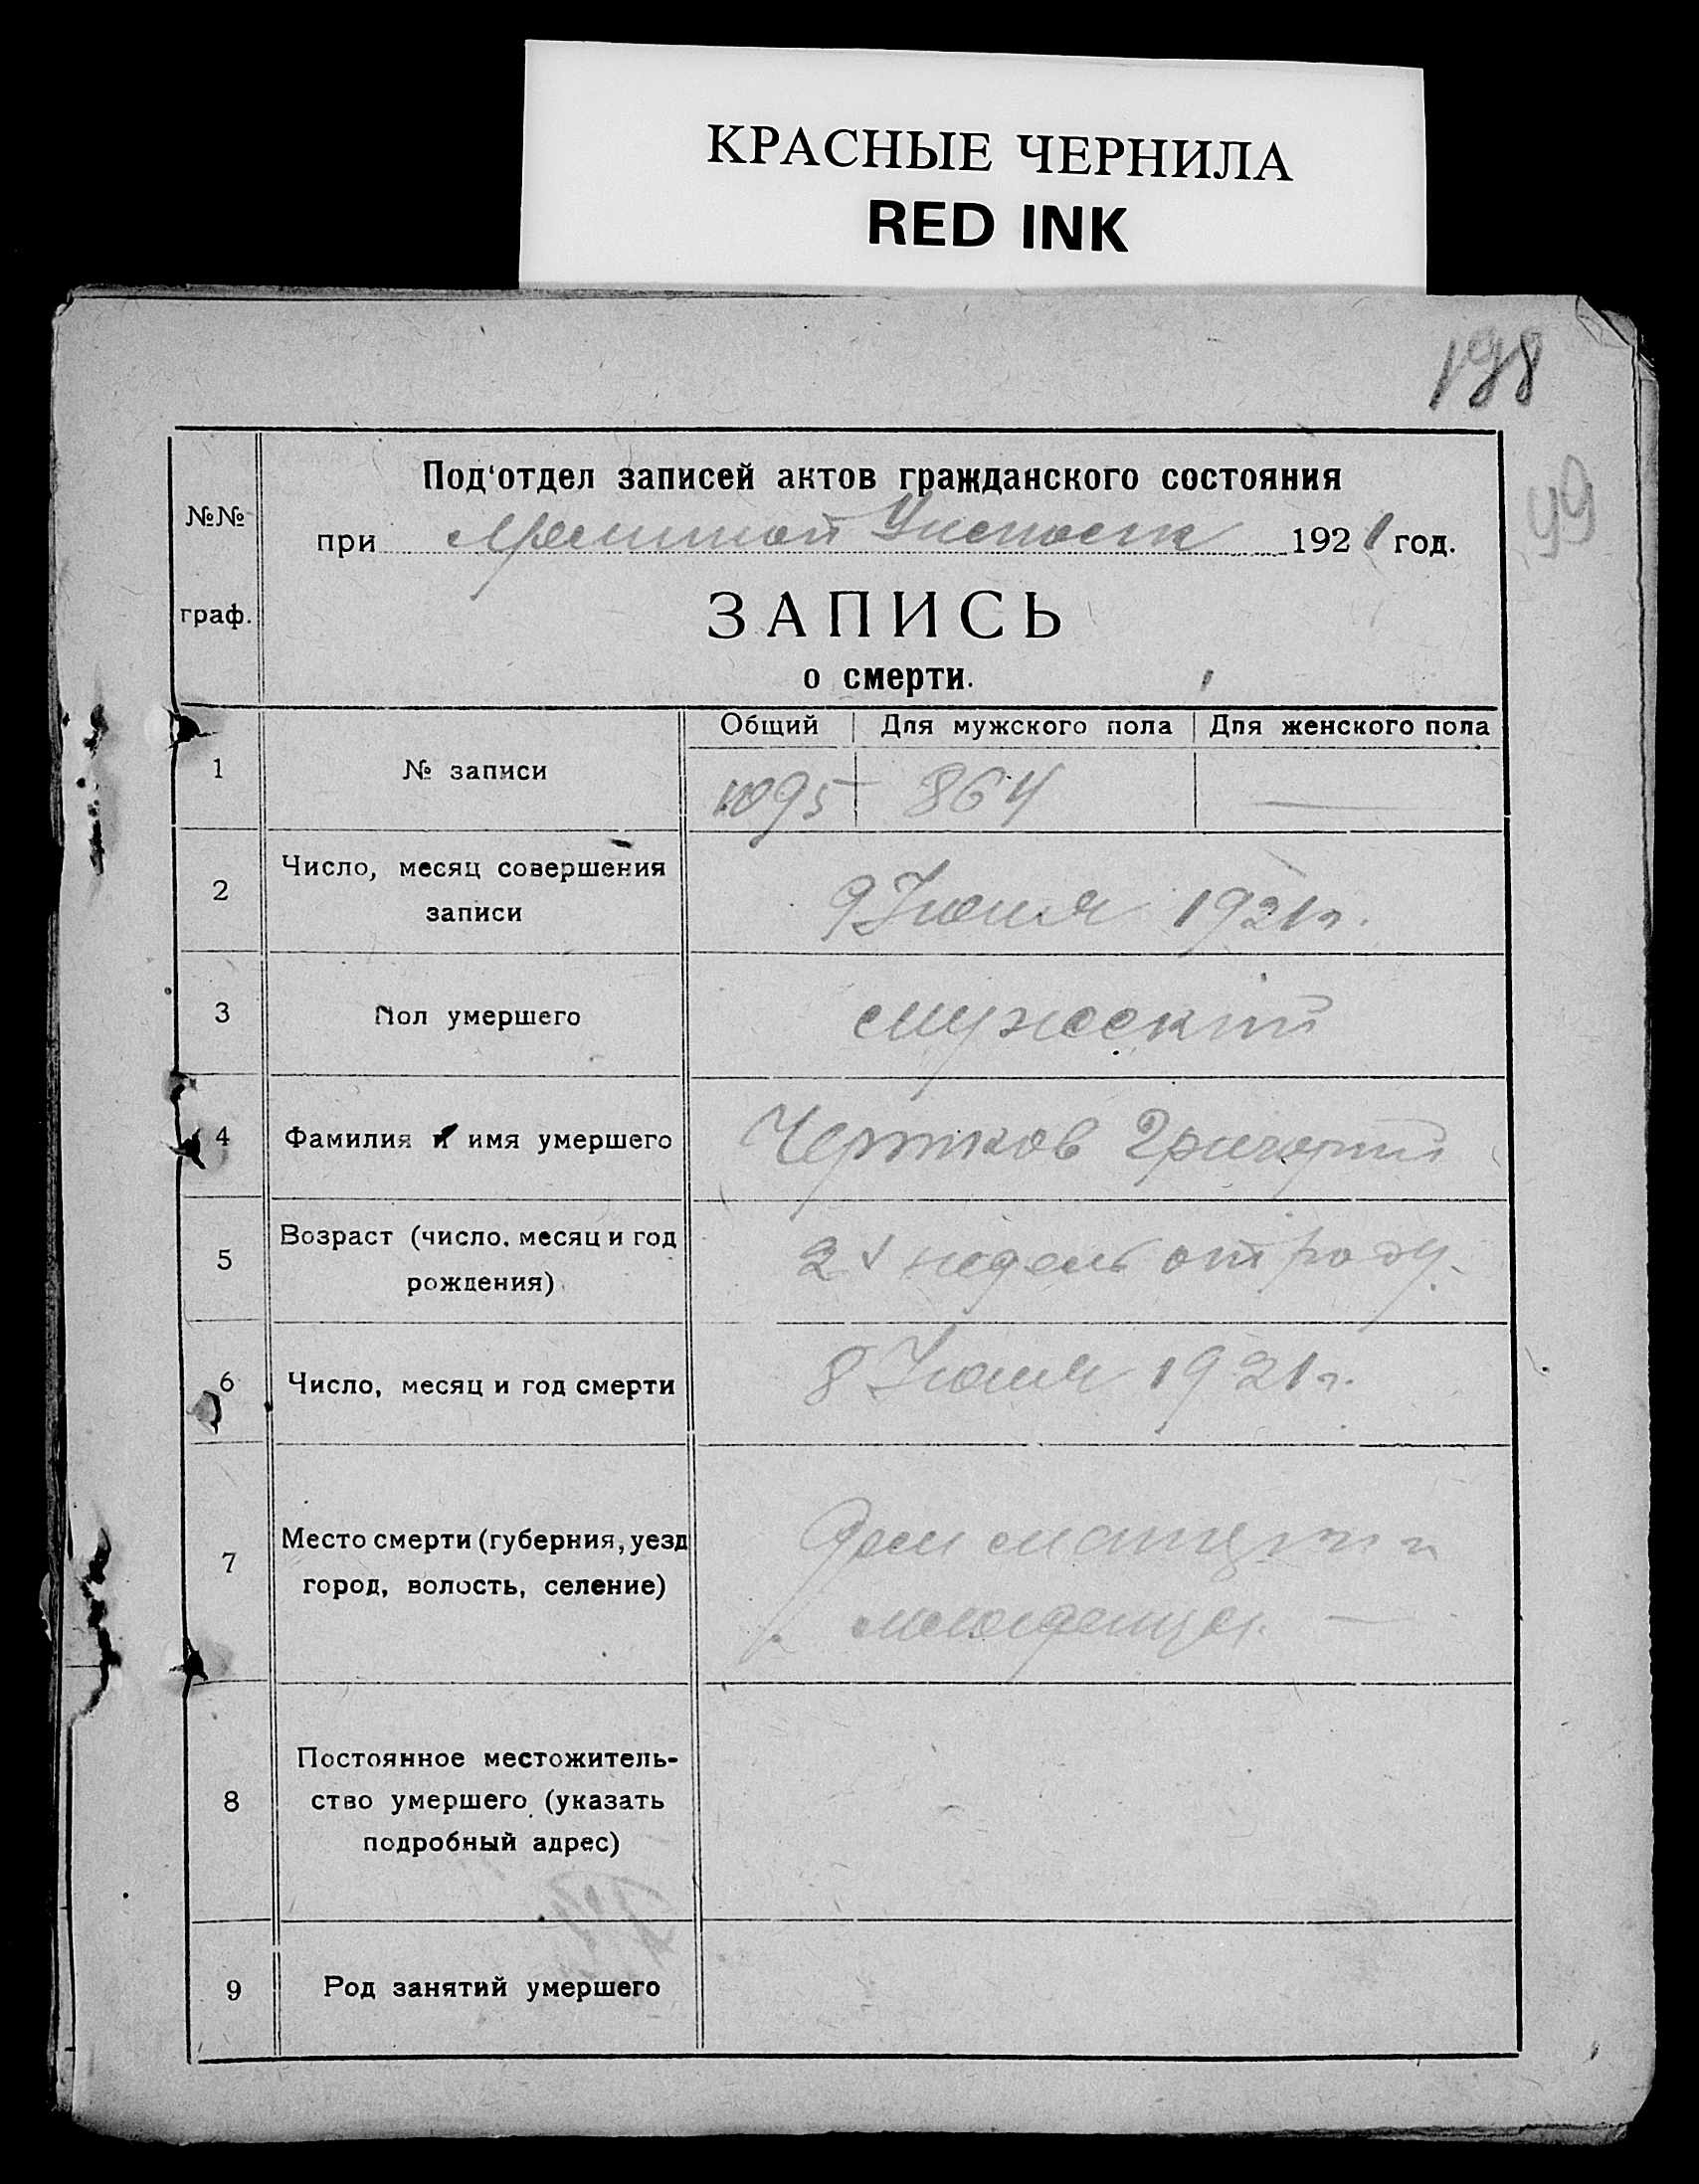 КРАСНЫЕ ЧЕРНИЛА
RED INK
198
99
Под'отдел записей актов гражданского состояния
№№
при 1921 год.
граф.
ЗАПИСЬ
о смерти.
Общий Для мужского пола Для женского пола
1 № записи 1095 864 —
2 Число, месяц совершения
записи
9 Июня 1921 г.
3 Пол умершего мужский
4 Фамилия и имя умершего Чертков Григорий
5 Возраст (число, месяц и год
рождения)
недель от роду.
6 Число, месяц и год смерти 8 Июня 1921 г.
7 Место смерти (губерния, уезд
город, волость, селение)
Дом матери и
младенца. —
8 Постоянное местожитель-
ство умершего (указать
подробный адрес)
9 Род занятий умершего